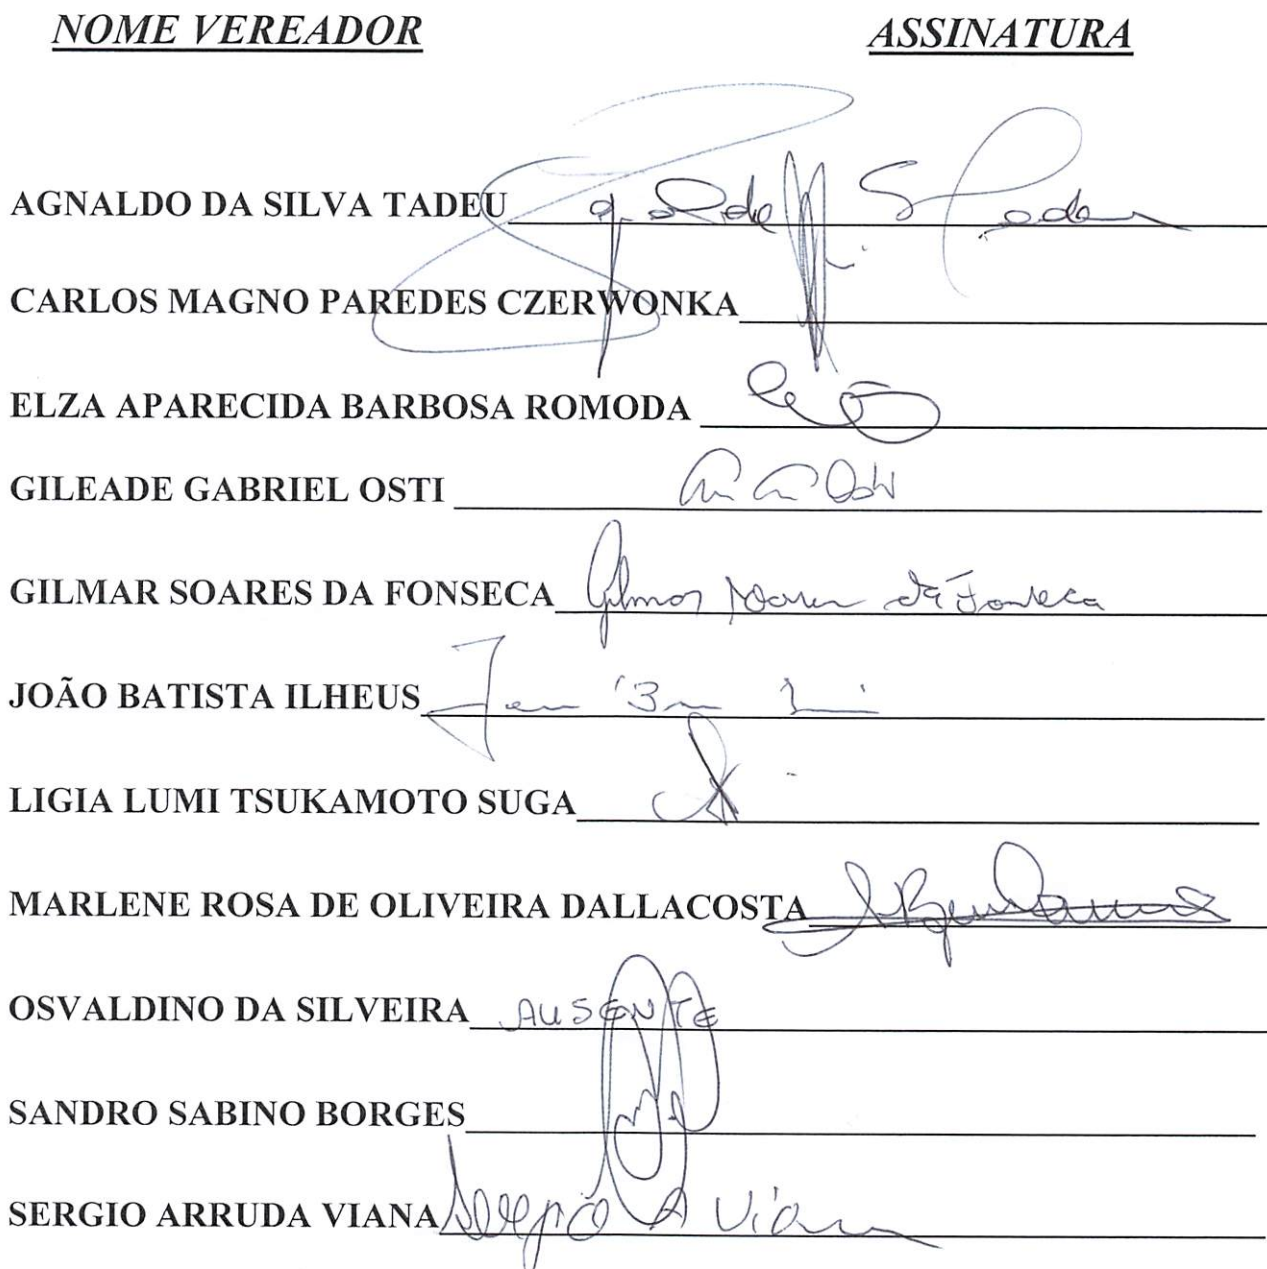 NOME VEREADOR ASSINATURA
AGNALDO DA SILVA TADEU
CARLOS MAGNO PAREDES CZERWONKA
ELZA APARECIDA BARBOSA ROMODA
GILEADE GABRIEL OSTI
GILMAR SOARES DA FONSECA Gilmar Soares da Fonseca
JOÃO BATISTA ILHEUS
LIGIA LUMI TSUKAMOTO SUGA
MARLENE ROSA DE OLIVEIRA DALLACOSTA
OSVALDINO DA SILVEIRA AUSENTE
SANDRO SABINO BORGES
SERGIO ARRUDA VIANA Sergio A Viana